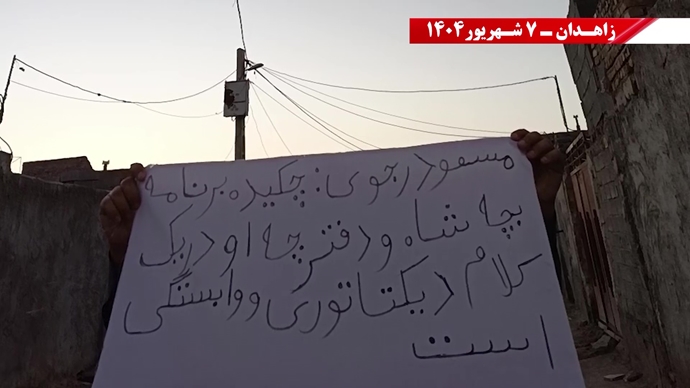 زاهدان - ۷ شهریور ۱۴۰۴
مسعود رجوی: چکیده برنامه
بچه شاه و دفترچه او در یک
کلام دیکتاتوری و وابستگی
است